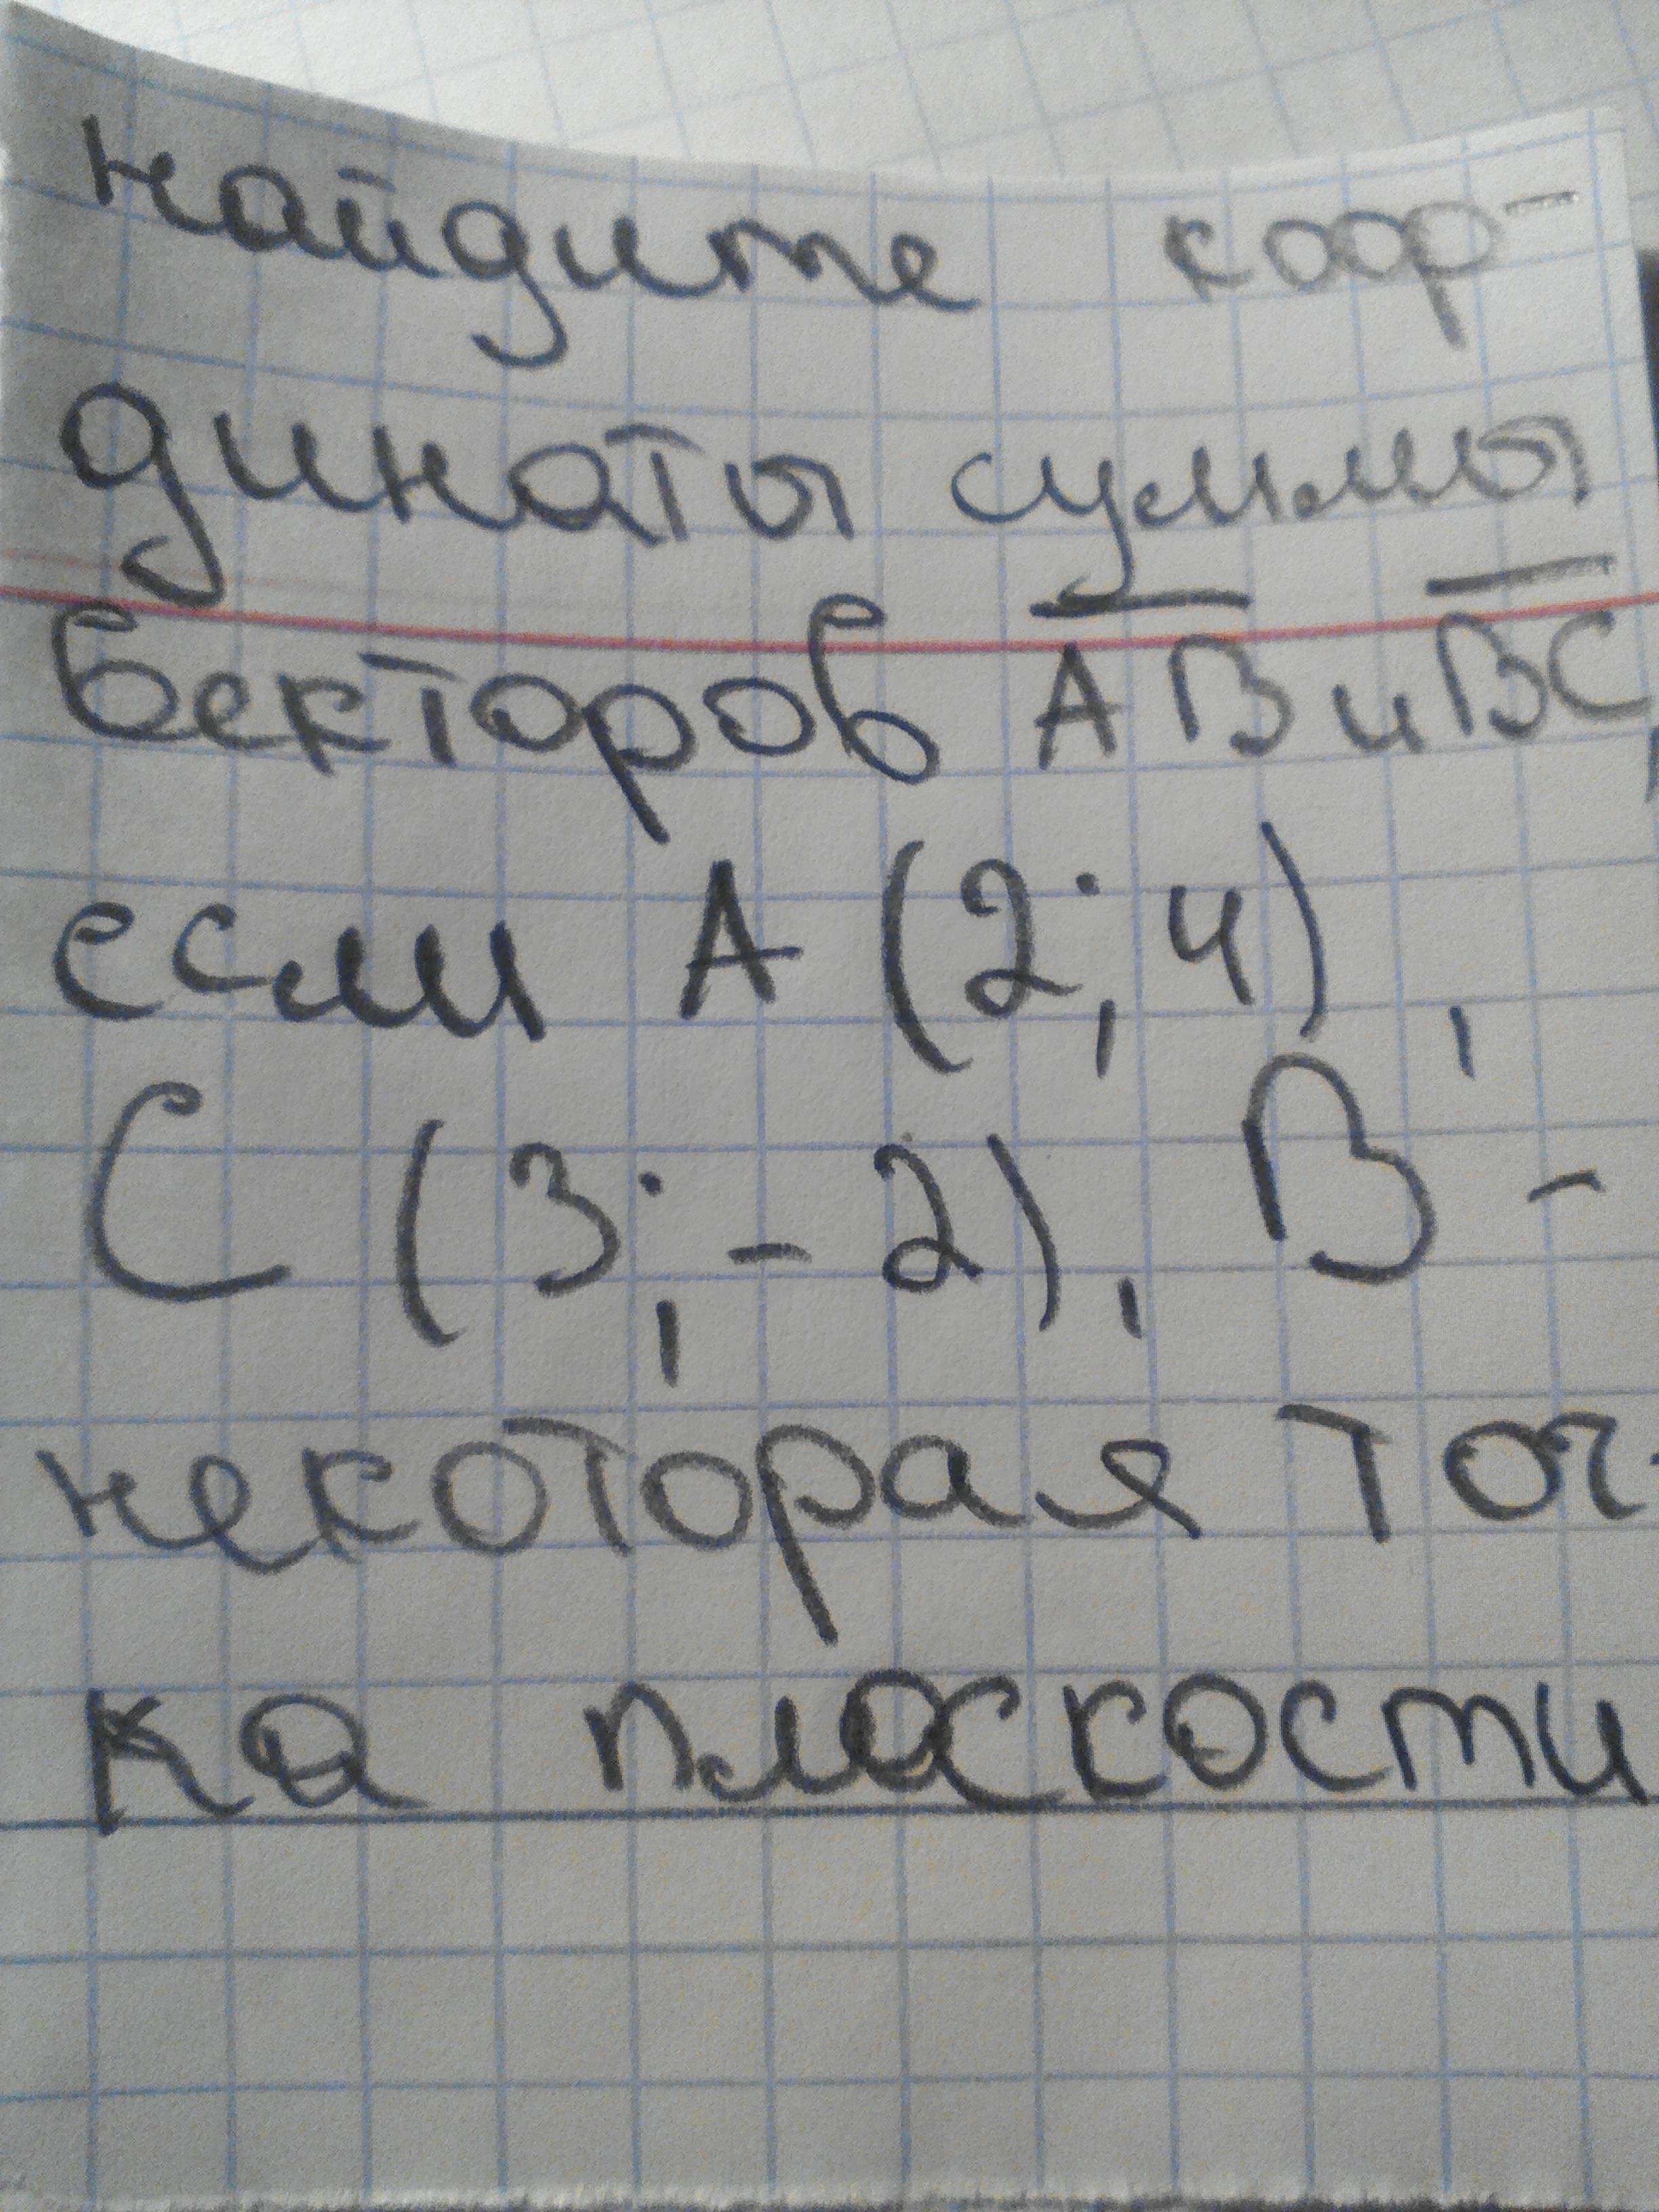 найдите коор-
динаты суммы
векторов AB и BC,
если A (2; 4) ,
C (3; - 2), B -
некоторая точ-
ка плоскости